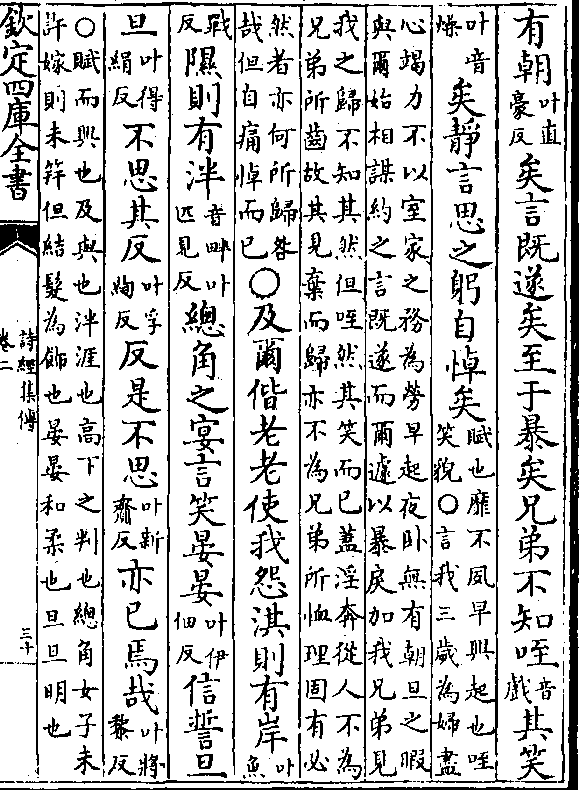 有朝叶直豪反矣言既遂矣至于暴矣兄弟不知咥音戲其笑
叶音燥矣靜言思之躬自悼矣賦也靡不夙早興起也咥笑貌○言我三歲為婦盡
心竭力不以室家之務為勞早起夜卧無有朝旦之暇
與爾始相謀約之言既遂而爾遽以暴戾加我兄弟見
我之歸不知其然但咥然其笑而已蓋淫奔從人不為
兄弟所齒故其見棄而歸亦不為兄弟所恤理固有必
然者亦何所歸咎
哉但自痛悼而已○及爾偕老老使我怨淇則有岸叶魚
戰反隰則有泮音畔叶匹見反總角之宴言笑晏晏叶伊佃反信誓旦
旦叶得絹反不思其反叶孚絢反反是不思叶新齎反亦已焉哉叶將黎反
○賦而興也及與也泮涯也高下之判也總角女子未
許嫁則未筓但結髮為飾也晏晏和柔也旦旦明也
欽定四庫全書
詩經集傳
卷二
三十